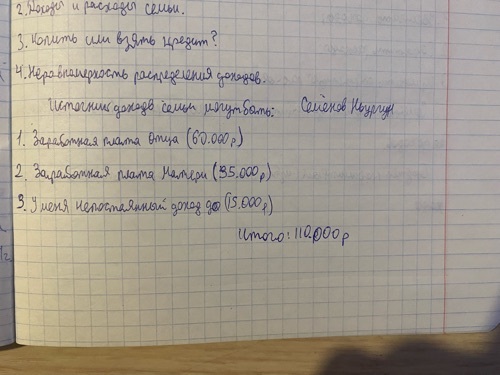 2. Доходы и расходы семьи.
3. Копить или взять кредит?
4. Неравномерность распределения доходов.
Источник доходв семьи могут быть: Семёнов Ньургун
1. Заработная плата Отца (60.000р)
2. Заработная плата Матери (35.000р)
3. У меня непостоянный доход до (15.000р)
Итого: 110.000р